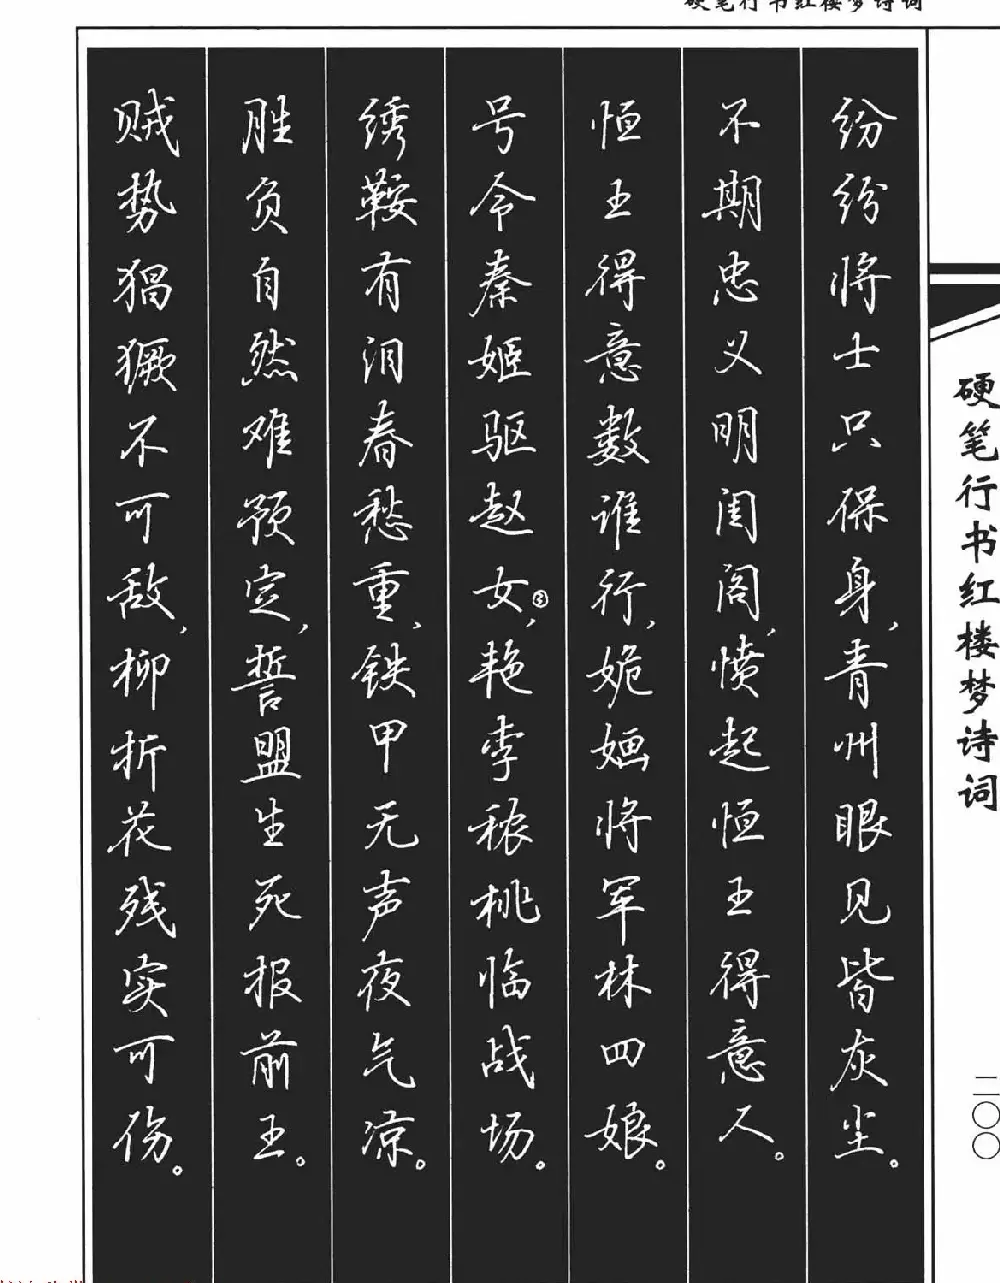 硬笔行书红楼梦诗词
纷纷将士只保身，青州眼见皆灰尘。
不期忠义明闺阁，愤起恒王得意人。
恒王得意数谁行，姽婳将军林四娘。
号令秦姬驱赵女③，艳李秾桃临战场。
绣鞍有泪春愁重，铁甲无声夜气凉。
胜负自然难预定，誓盟生死报前王。
贼势猖獗不可敌，柳折花残实可伤。
硬笔行书红楼梦诗词
二〇〇